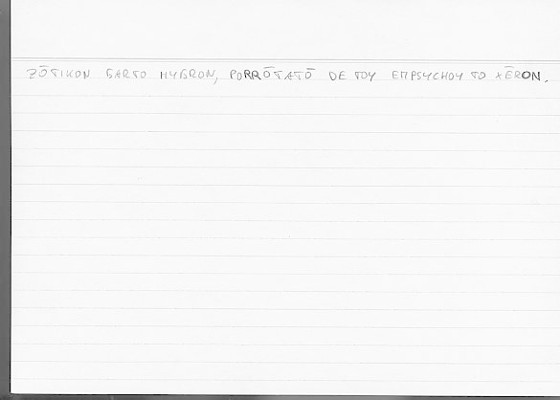 ZŌTIKON GAR TO HYGRON, PORRŌTATŌ DE TOY EMPSYCHOY TO XĒRON.